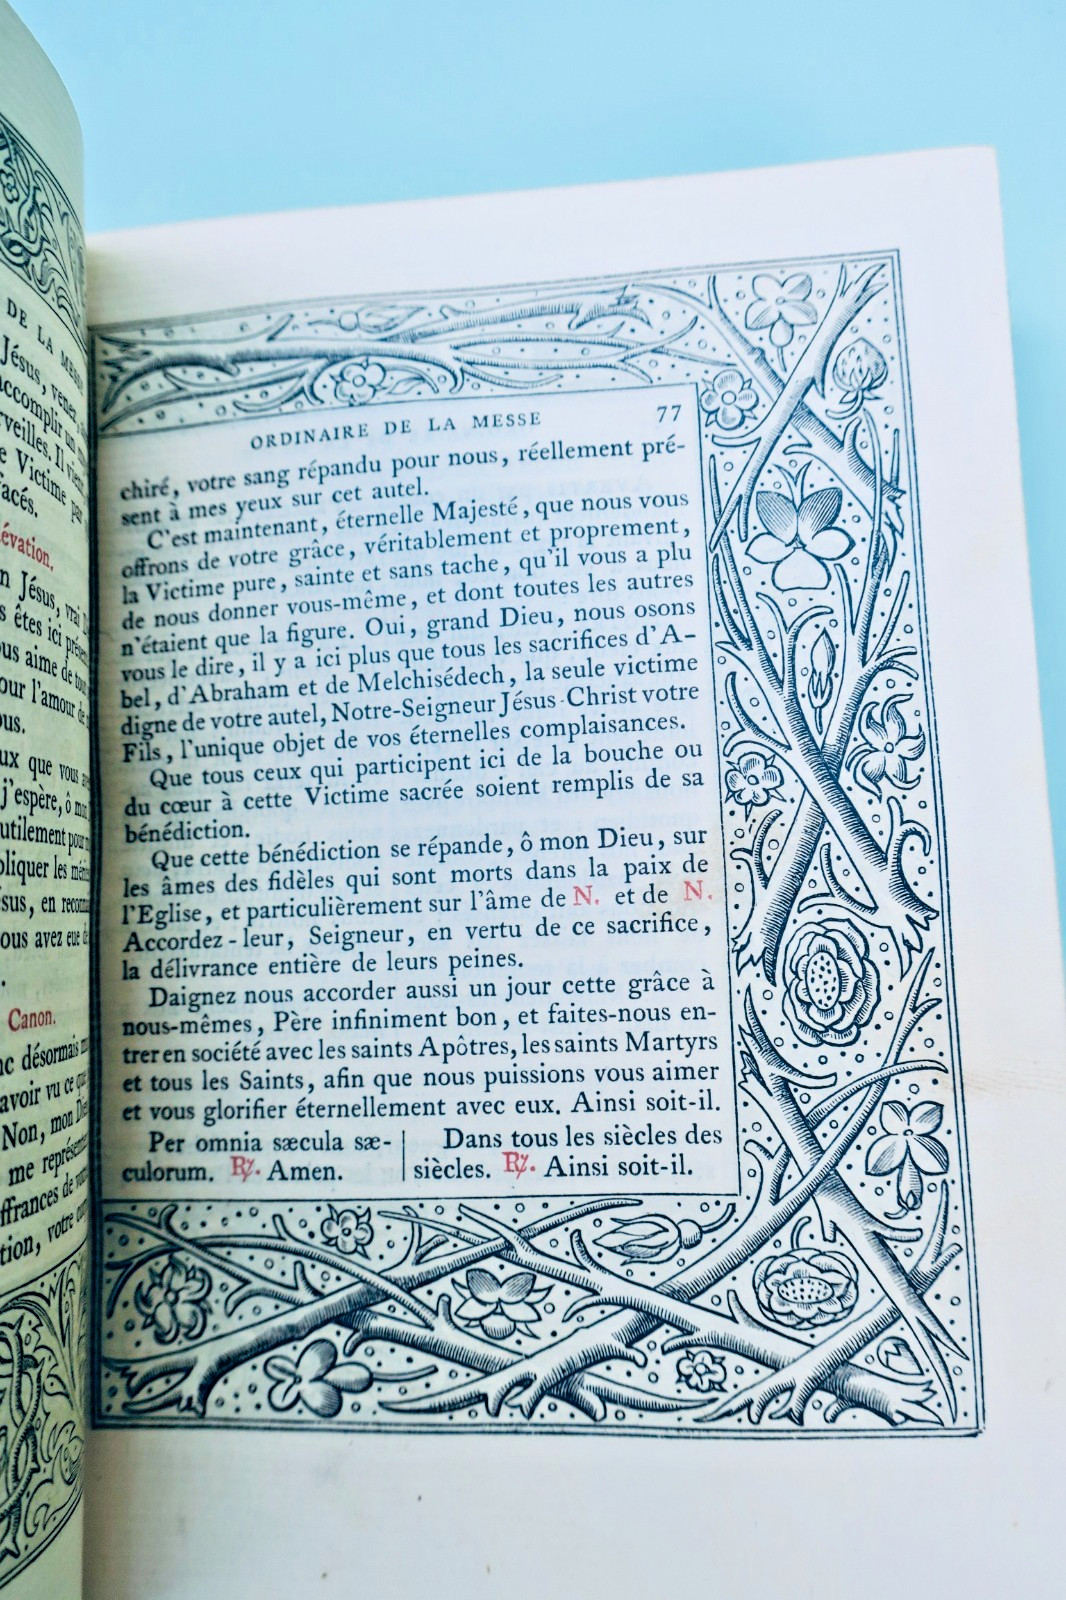 DE LA MESSE
Jésus, venez
accomplir un
veilles. Il vient
Victime par
facés.
évation.
n Jésus, vrai
s êtes ici
ous aime de tout
our l'amour de
ous.
ux que vous
j'espère, ô mon
utilement pour
pliquer les
sus, en
ous avez eue de
.
Canon.
nc désormais
avoir vu ce que
Non, mon Dieu
me
ffrances de
tion, votre
ORDINAIRE DE LA MESSE 77
chiré, votre sang répandu pour nous, réellement pré-
sent à mes yeux sur cet autel.
C'est maintenant, éternelle Majesté, que nous vous
offrons de votre grâce, véritablement et proprement,
la Victime pure, sainte et sans tache, qu'il vous a plu
de nous donner vous-même, et dont toutes les autres
n'étaient que la figure. Oui, grand Dieu, nous osons
vous le dire, il y a ici plus que tous les sacrifices d'A-
bel, d'Abraham et de Melchisédech, la seule victime
digne de votre autel, Notre-Seigneur Jésus-Christ votre
Fils, l'unique objet de vos éternelles complaisances.
Que tous ceux qui participent ici de la bouche ou
du cœur à cette Victime sacrée soient remplis de sa
bénédiction.
Que cette bénédiction se répande, ô mon Dieu, sur
les âmes des fidèles qui sont morts dans la paix de
l'Eglise, et particulièrement sur l'âme de N. et de N.
Accordez-leur, Seigneur, en vertu de ce sacrifice,
la délivrance entière de leurs peines.
Daignez nous accorder aussi un jour cette grâce à
nous-mêmes, Père infiniment bon, et faites-nous en-
trer en société avec les saints Apôtres, les saints Martyrs
et tous les Saints, afin que nous puissions vous aimer
et vous glorifier éternellement avec eux. Ainsi soit-il.
Per omnia sæcula sæ-
culorum. ℟. Amen.
Dans tous les siècles des
siècles. ℟. Ainsi soit-il.